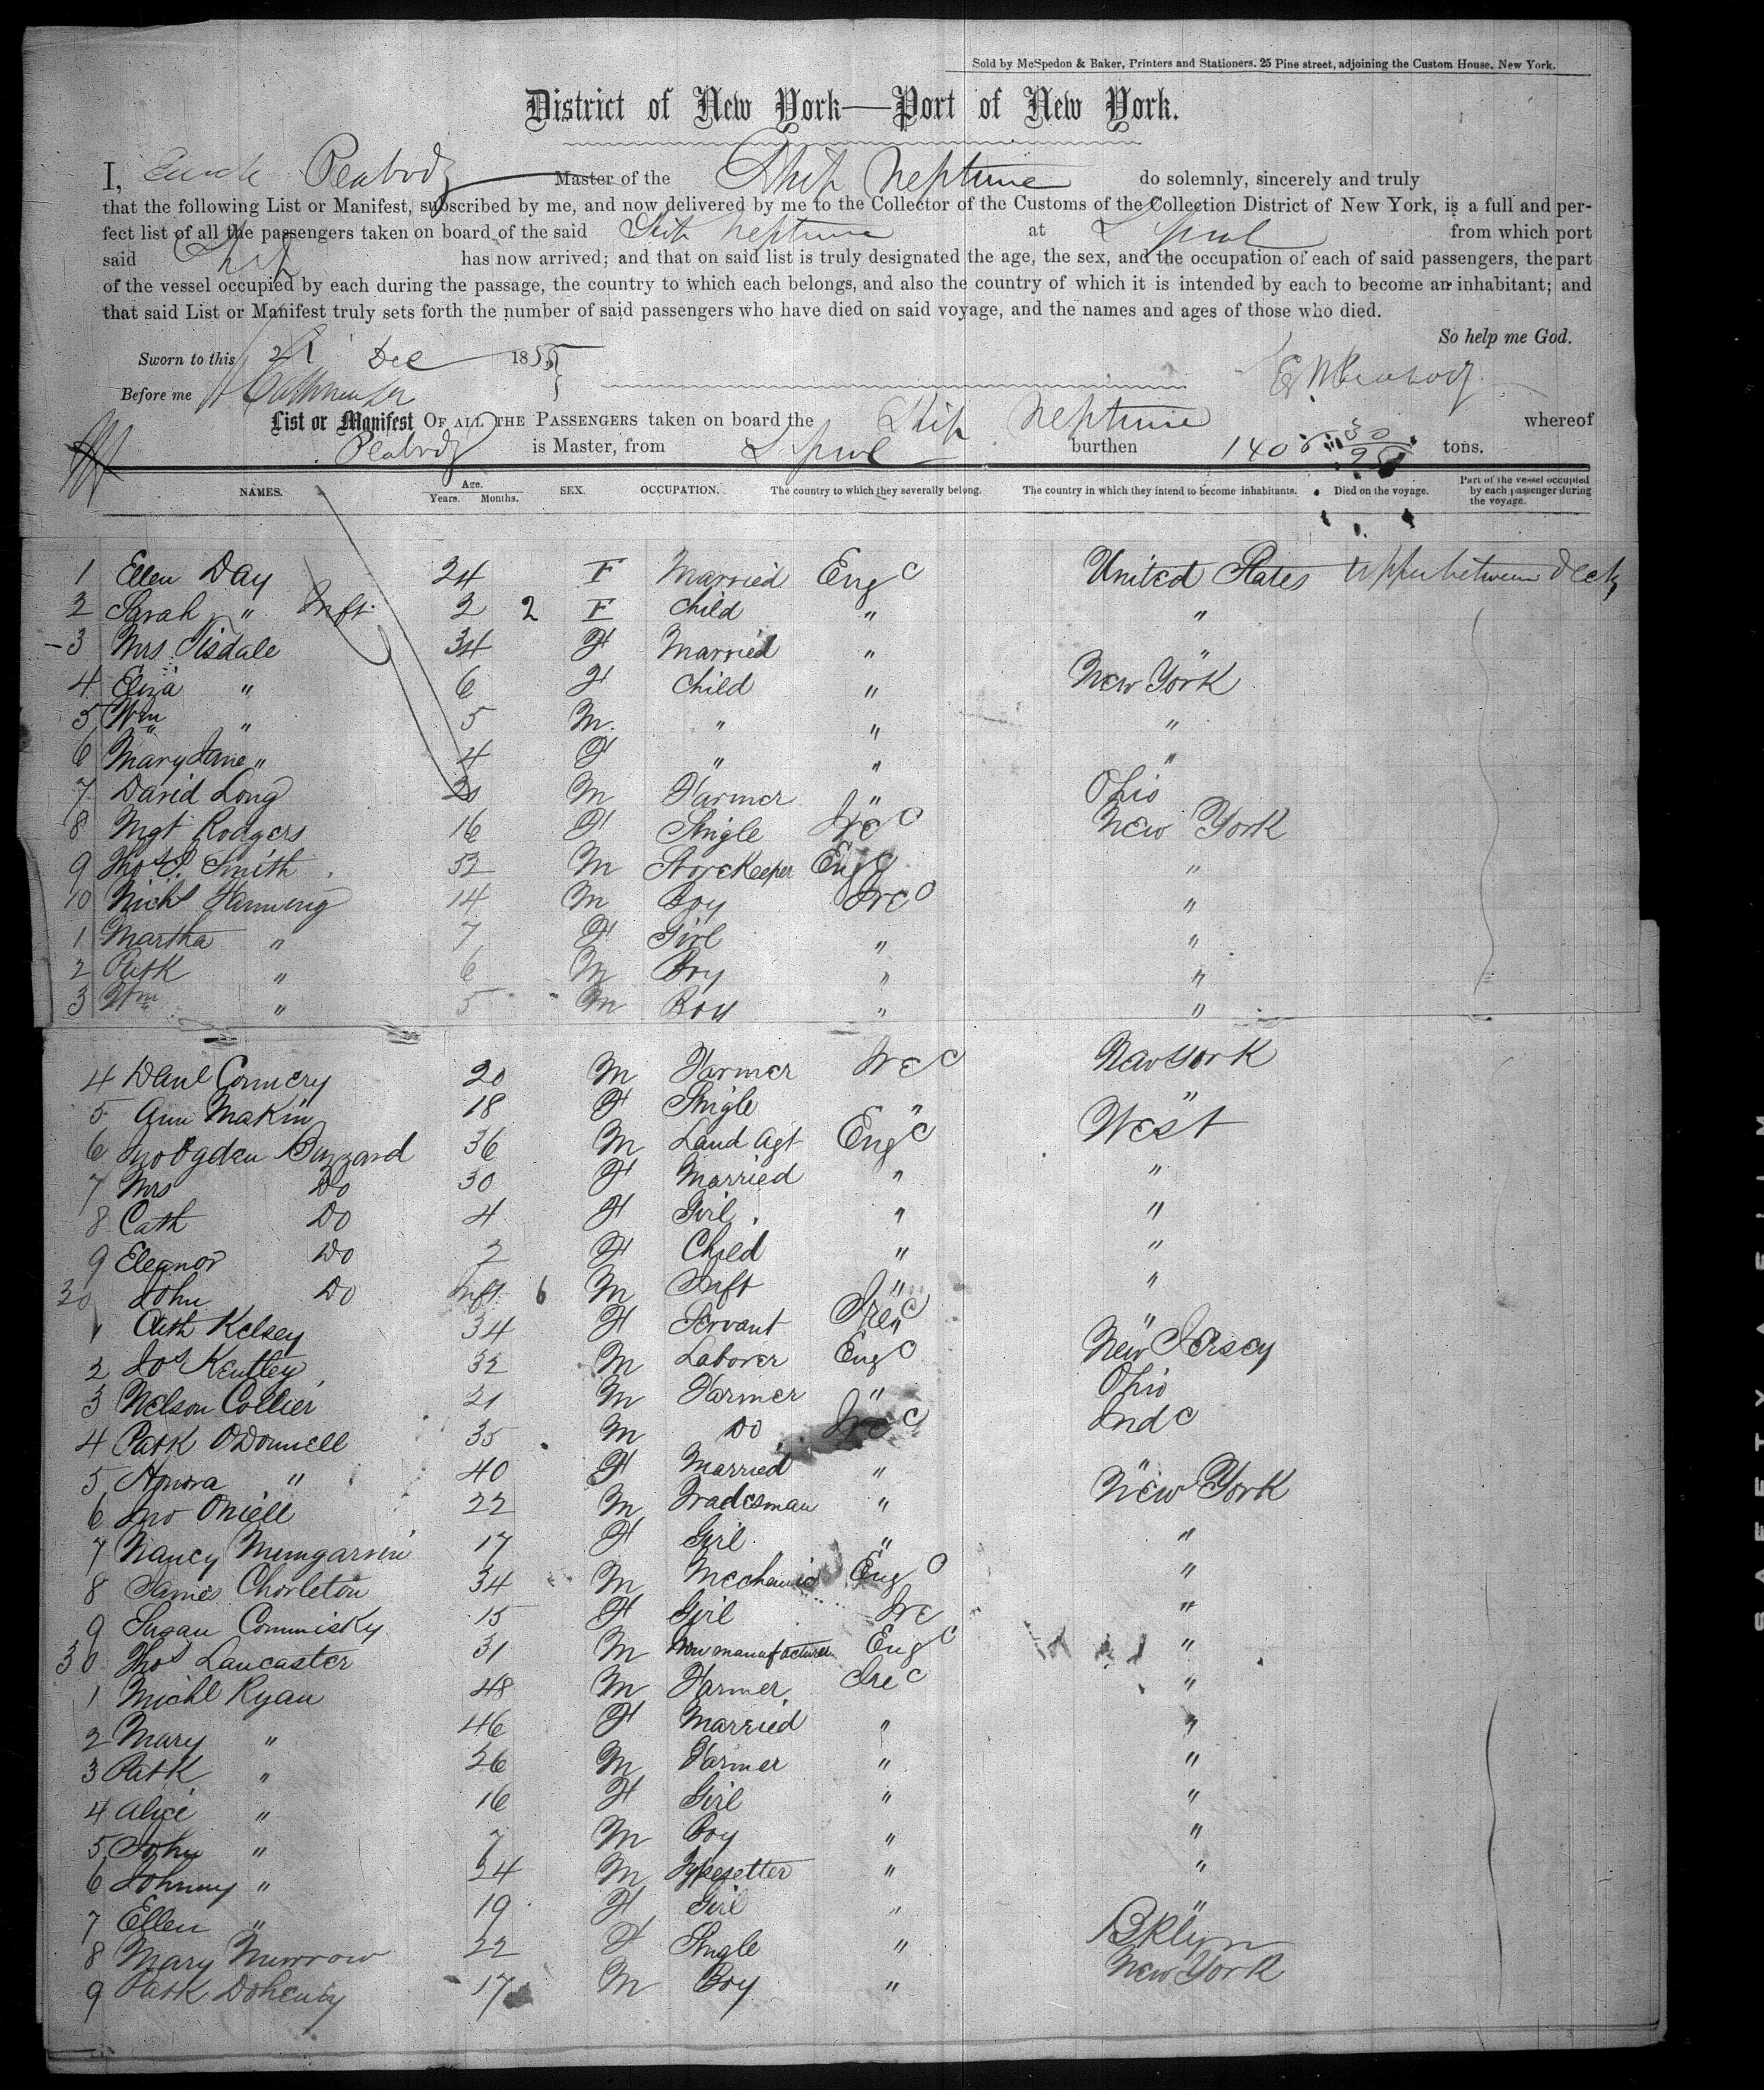 Sold by McSpedon & Baker, Printers and Stationers. 25 Pine street, adjoining the Custom House, New York.
District of New York—Port of New York.
I, Peabody Master of the Ship Neptune do solemnly, sincerely and truly
that the following List or Manifest, subscribed by me, and now delivered by me to the Collector of the Customs of the Collection District of New York, is a full and per-
fect list of all the passengers taken on board of the said Ship Neptune at L'pool from which port
said Ship has now arrived; and that on said list is truly designated the age, the sex, and the occupation of each of said passengers, the part
of the vessel occupied by each during the passage, the country to which each belongs, and also the country of which it is intended by each to become an inhabitant; and
that said List or Manifest truly sets forth the number of said passengers who have died on said voyage, and the names and ages of those who died.
So help me God.
Sworn to this 21 Dec 1855
Before me E Peabody
List or Manifest OF ALL THE PASSENGERS taken on board the Ship Neptune whereof
Peabody is Master, from L'pool burthen 1406 30/95 tons.
NAMES. Age. Years. Months. SEX. OCCUPATION. The country to which they severally belong. The country in which they intend to become inhabitants. Died on the voyage. Part of the vessel occupied by each passenger during the voyage.
1 Ellen Day 24 F Married Engd United States Upper between Deck
2 Sarah " Inft 2 2 F Child " "
3 Mrs Tisdale 34 F Married " "
4 Eliza " 6 F Child " New York
5 Wm " 5 M " " "
6 Mary Jane " 4 F " " "
7 David Long 20 M Farmer " Ohio
8 Mgt Rodgers 16 F Single Ired New York
9 Thos Smith 52 M StoreKeeper Engd "
10 Nichs 14 M Boy Ired "
1 Martha " 7 F Girl " "
2 Patk " 6 M Boy " "
3 Wm " 5 M Boy " "
4 Danl Cormery 20 M Farmer Ired New York
5 Ann Makin 18 F Single " "
6 Jno Ogden Buzzard 36 M Land Agt Engd West
7 Mrs Do 30 F Married " "
8 Cath Do 4 F Girl " "
9 Eleanor Do 2 F Child " "
20 John Do Inft 6 M Inft " "
1 Cath Kelsey 34 F Servant Ired "
2 Jos Kentley 32 M Laborer Engd New Jersey
3 Nelson Collier 21 M Farmer " Ohio
4 Patk ODonnell 35 M Do Ired Indc
5 Honora " 40 F Married " "
6 Jno Oniell 22 M Tradesman " New York
7 Nancy 17 F Girl " "
8 James Chorleton 34 M Mechanic Engd "
9 Susan Commisky 15 F Girl Ire "
30 Thos Lancaster 31 M Iron manufacturer Engd "
1 Michl Ryan 48 M Farmer Ired "
2 Mary " 46 F Married " "
3 Patk " 26 M Farmer " "
4 Alice " 16 F Girl " "
5 John " 7 M Boy " "
6 Johnny " 24 M Typesetter " "
7 Ellen " 19 F Girl " "
8 Mary Murrow 22 F Single " BKlyn
9 Patk Doheny 17 M Boy " New York
SAFETY FILM